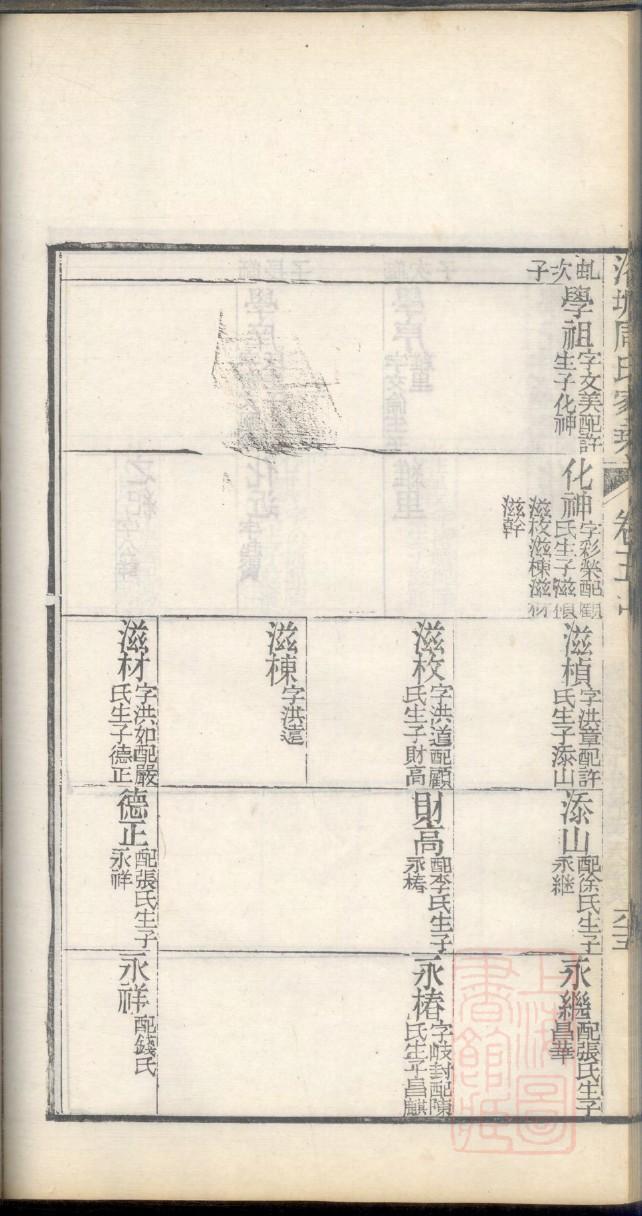 周氏家
卷五
虬次子
學祖
字文美配許
生子化神
化神
字彩榮配顧
氏生子滋楨
滋枚滋棟滋材
滋幹
滋楨
字洪章配許
氏生子添山
滋枚
字洪道配顧
氏生子財高
滋棟
字洪遠
滋材
字洪如配嚴
氏生子德正
添山
配徐氏生子
永繼
財高
配李氏生子
永椿
德正
配張氏生子
永祥
永繼
配張氏生子
昌華
永椿
字岐封配陳
氏生子昌麒
永祥
配錢氏
上海圖書館藏